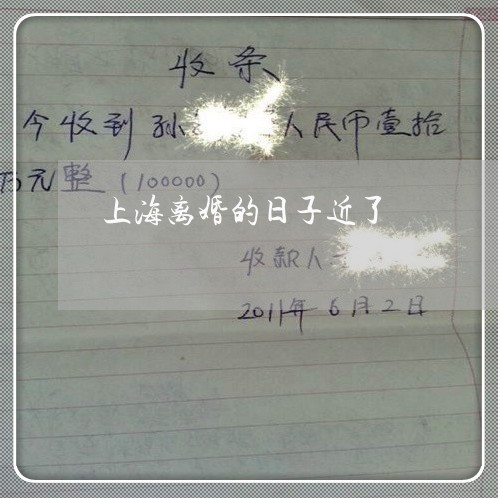 收条
今收到孙 人民币壹拾
万元整(100000)
上海离婚的日子近了
收款人
2011年6月2日